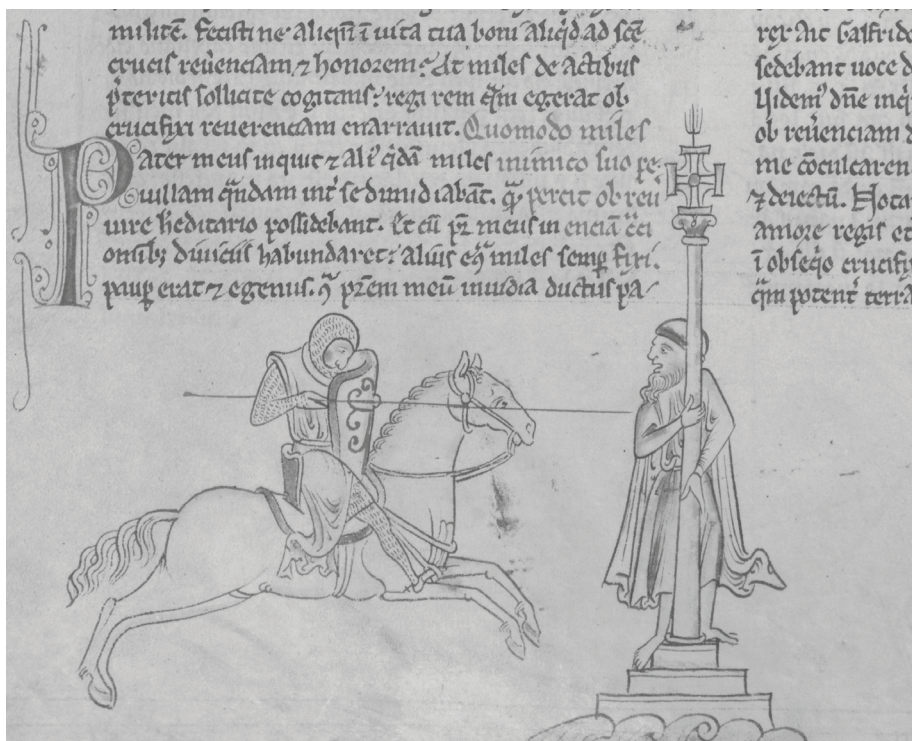 militē. Fecisti ne aliqn̄ ī uita tua boni aliqd̓ ad sc̄e
crucis reu̓enciam ⁊ honorem? At miles de actibus
p̓teritis sollicite cogitans: regi rem q̄m egerat ob
crucifixi reuerenciam enarrauit. Quomodo miles
Pater meus inquit ⁊ ali᷒ q̄dā miles inimico suo pe
uillam q̄ndam int̓ se dimidiabāt. percit ob reu
iure h̓editario possidebant. Et cū pr̄ meus in enciā
onib; diuiciis habundaret: miles semp̄ fixi.
paup̄ erat ⁊ egenus. q̓ pr̄em meū inuidia ductus pa
rex Ait Galfride
sedebant uoce d
Uidem᷒ dn̄e inq̓
ob reu̓enciam d
me cōculcaren
⁊ deiectū. Hota
amore regis et
ī obseq̓o crucifi
q̄m potent̓ terra